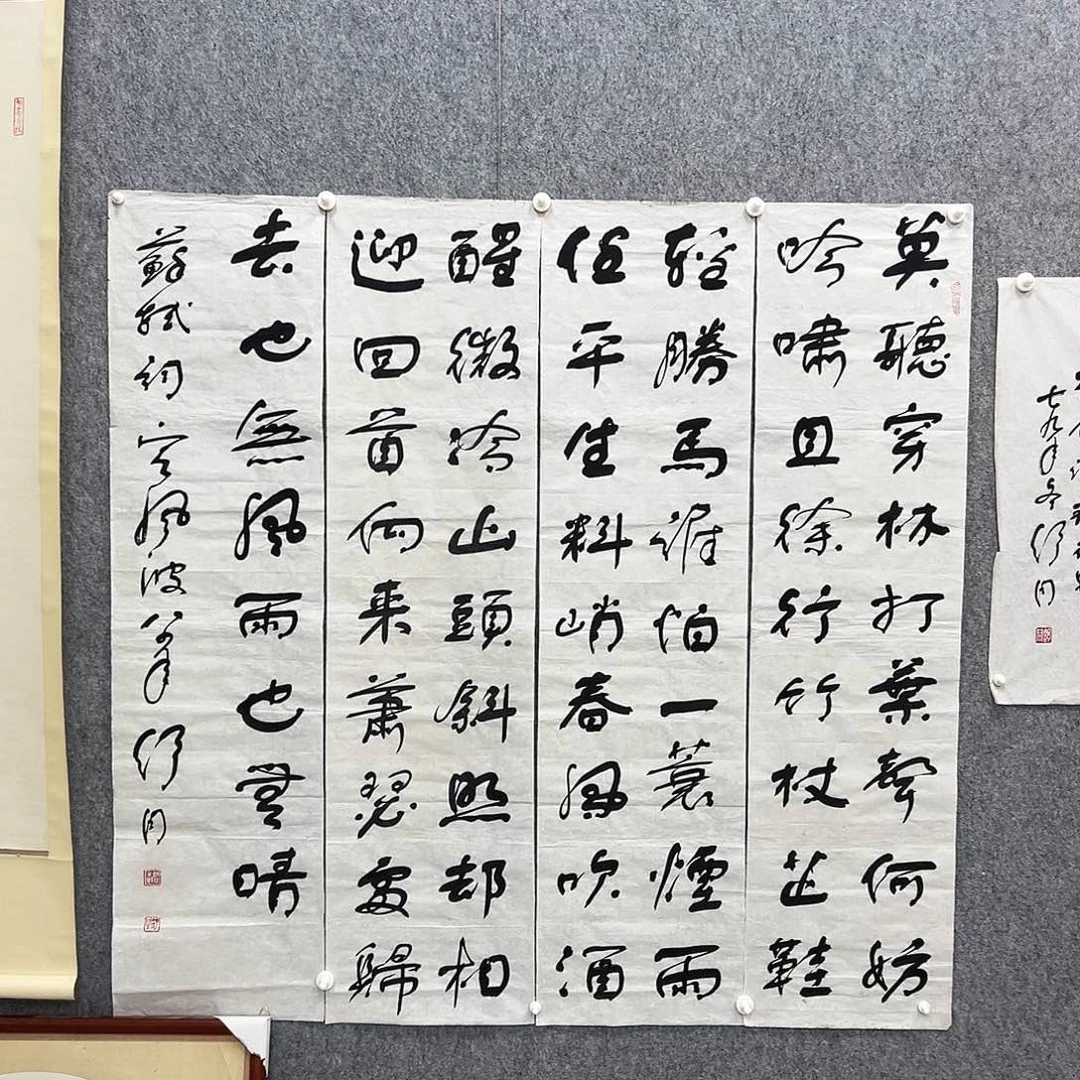 七九年冬舒同
莫聽穿林打葉聲何妨
吟嘯且徐行竹杖芒鞋
輕勝馬誰怕一蓑煙雨
任平生料峭春風吹酒
醒微冷山頭斜照却相
迎回首向来蕭瑟處歸
去也無風雨也無晴
蘇軾詞定風波八年舒同